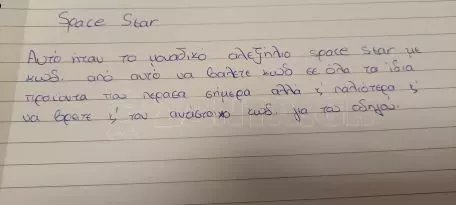 Space Star
Αυτό ήταν το μοναδικό αλεξήλιο space star με
κωδ. από αυτό να βάλετε κωδ σε όλα τα ίδια
προιοντα που περασα σήμερα αλλα ϛ παλιοτερα ϛ
να βρειτε ϛ τον αντιστοιχο κωδ. για του οδηγου.